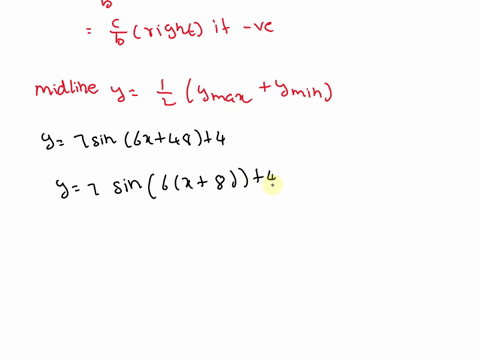 b
= c/b (right) if -ve
midline y = 1/2 (ymax + ymin)
y = 7 sin (6x+48)+4
y = 7 sin (6(x+8))+4